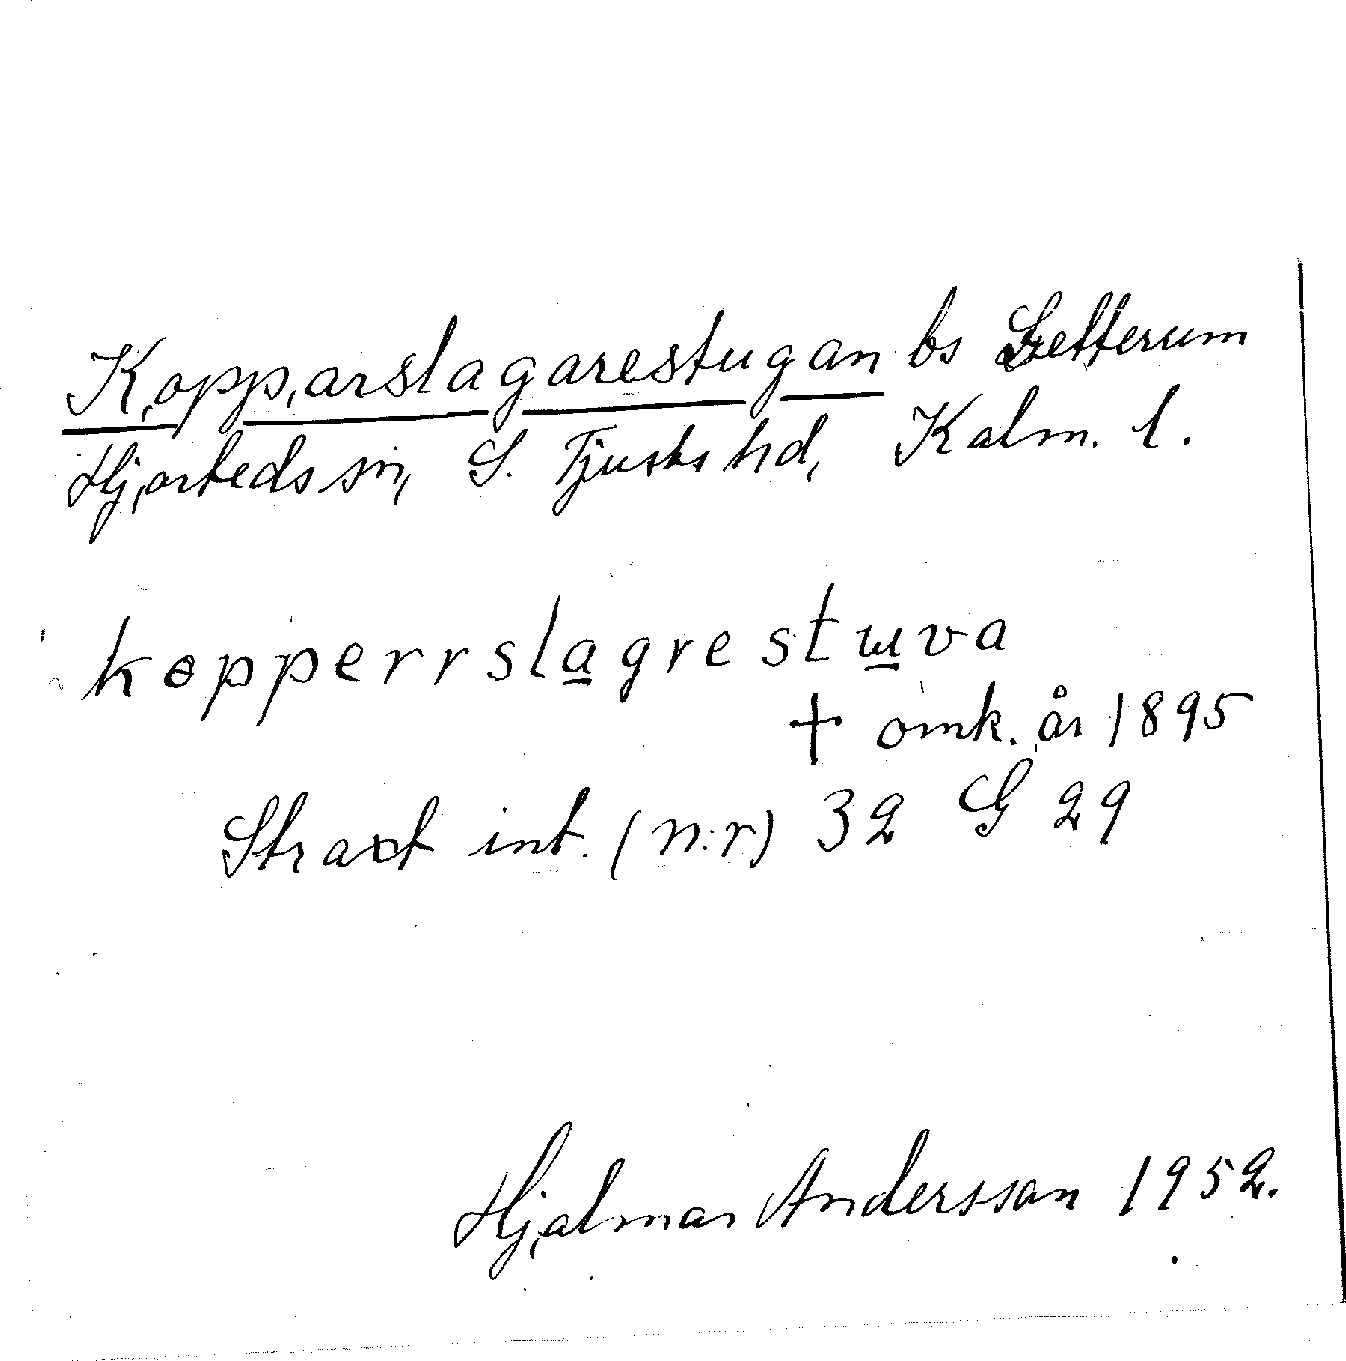 Kopparslagarestugan bs Getterum
Hjorteds sn, S. Tjusts hd, Kalm. l.
kopperrslagrestuva
+ omk. år 1895
Straxt int. (n:r) 32 G 29
Hjalmar Andersson 1952.